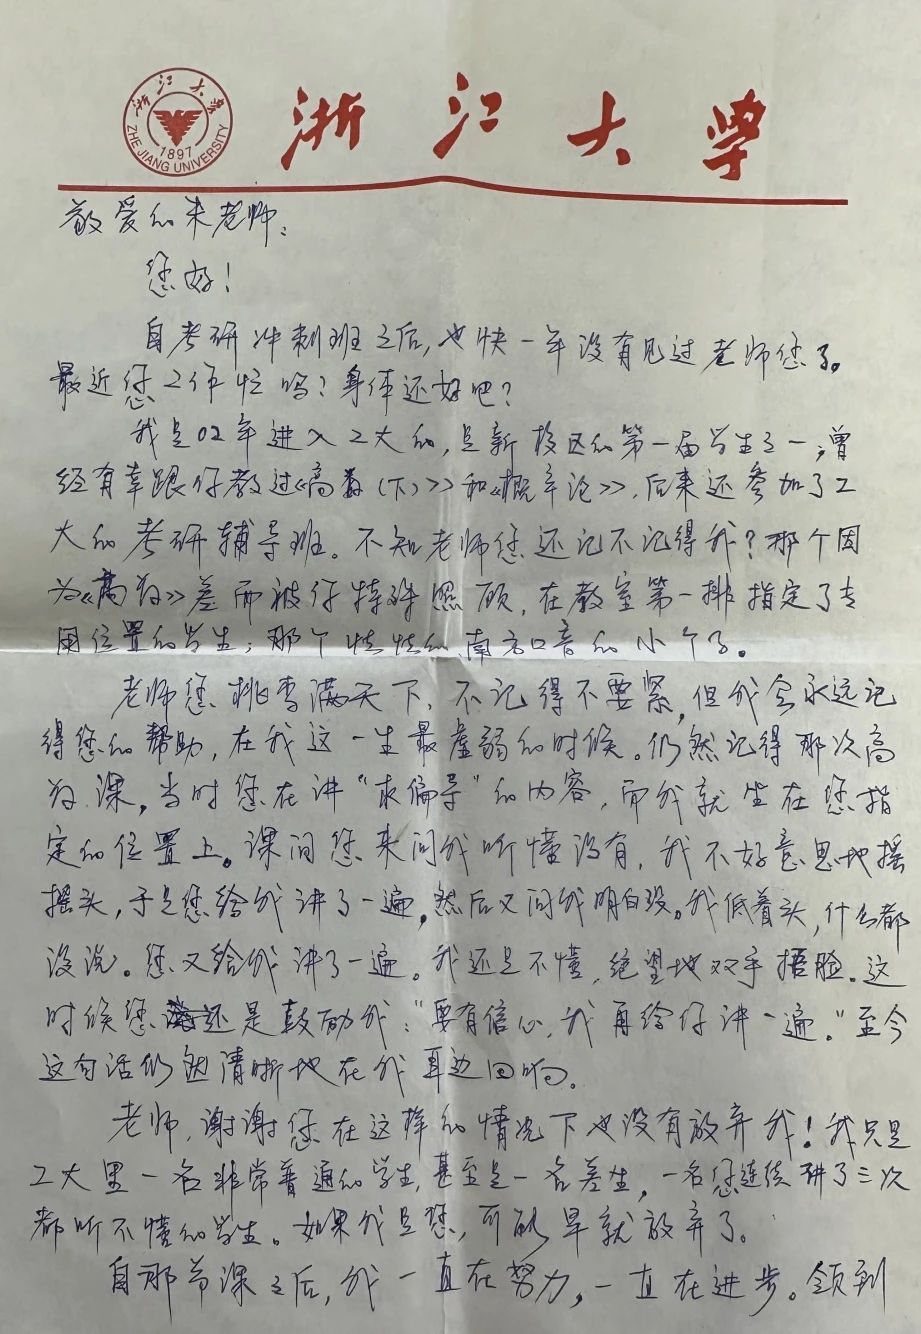 浙江大学
ZHE JIANG UNIVERSITY
1897
浙江大学
敬爱的朱老师：
您好！
自考研冲刺班之后，也快一年没有见过老师您了。
最近您工作忙吗？身体还好吧？
我是02年进入工大的，是新校区的第一届学生之一，曾
经有幸跟你教过《高数（下）》和《概率论》，后来还参加了工
大的考研辅导班。不知老师您还记不记得我？那个因
为《高数》差而被你特殊照顾，在教室第一排指定了专
用位置的学生；那个怯怯的、南方口音的小个子。
老师您桃李满天下，不记得不要紧，但我会永远记
得您的帮助，在我这一生最虚弱的时候。仍然记得那次高
数课，当时您在讲“求偏导”的内容，而我就坐在您指
定的位置上。课间您来问我听懂没有，我不好意思地摇
摇头，于是您给我讲了一遍，然后又问我明白没。我低着头，什么都
没说。您又给我讲了一遍。我还是不懂，绝望地双手捂脸。这
时候您还是鼓励我：“要有信心，我再给你讲一遍。”至今
这句话仍然清晰地在我耳边回响。
老师，谢谢您在这样的情况下也没有放弃我！我只是
工大里一名非常普通的学生，甚至是一名差生，一名您连续讲了三次
都听不懂的学生。如果我是您，可能早就放弃了。
自那节课之后，我一直在努力，一直在进步。领到